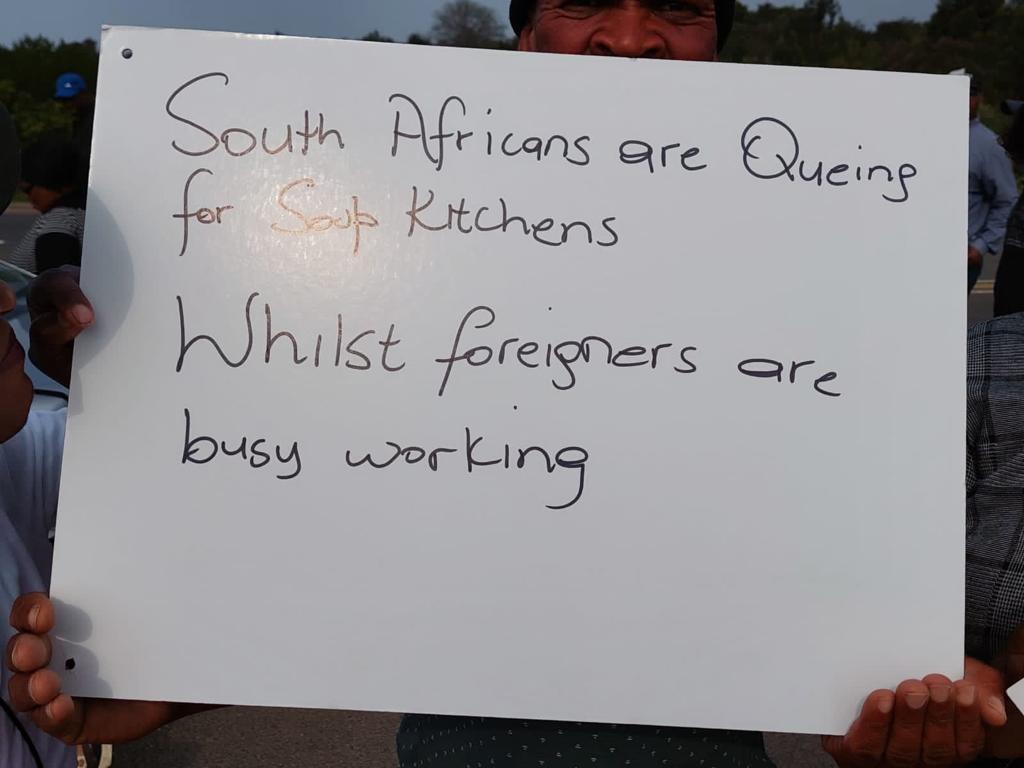 South Africans are Queing
for Soup Kitchens
Whilst foreigners are
busy working